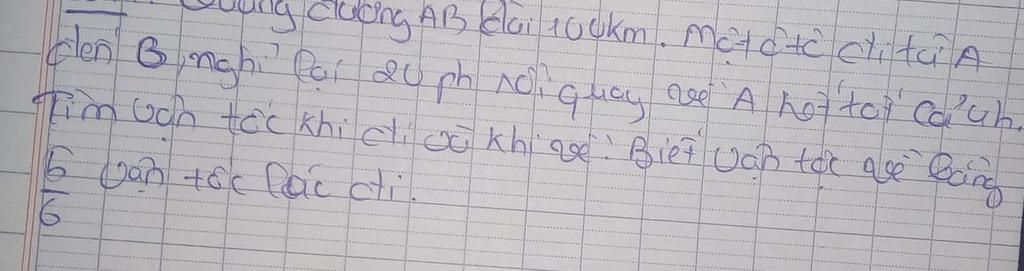 Quãng đường AB dài 100km. Một ô tô đi từ A
đến B, nghỉ lại 20 ph rồi quay về A hết tất cả 4h.
Tìm vận tốc khi đi và khi về. Biết vận tốc về bằng
5/6 vận tốc lúc đi.